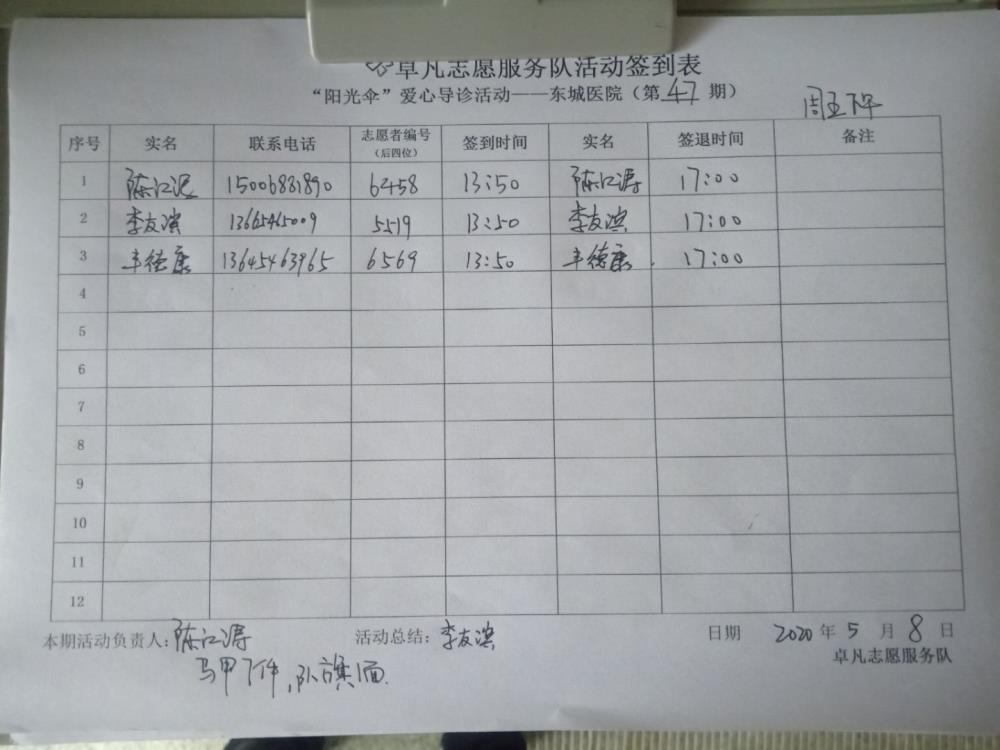 卓凡志愿服务队活动签到表
“阳光伞”爱心导诊活动——东城医院（第47期）
周五下午
序号 实名 联系电话 志愿者编号（后四位） 签到时间 实名 签退时间 备注
1 陈江涛 15006881890 6458 13:50 陈江涛 17:00
2 李友滨 13665465009 5519 13:50 李友滨 17:00
3 丰德康 13645463965 6569 13:50 丰德康 17:00
4
5
6
7
8
9
10
11
12
本期活动负责人：陈江涛 活动总结：李友滨 日期 2020年5月8日
马甲7件，队旗1面 卓凡志愿服务队